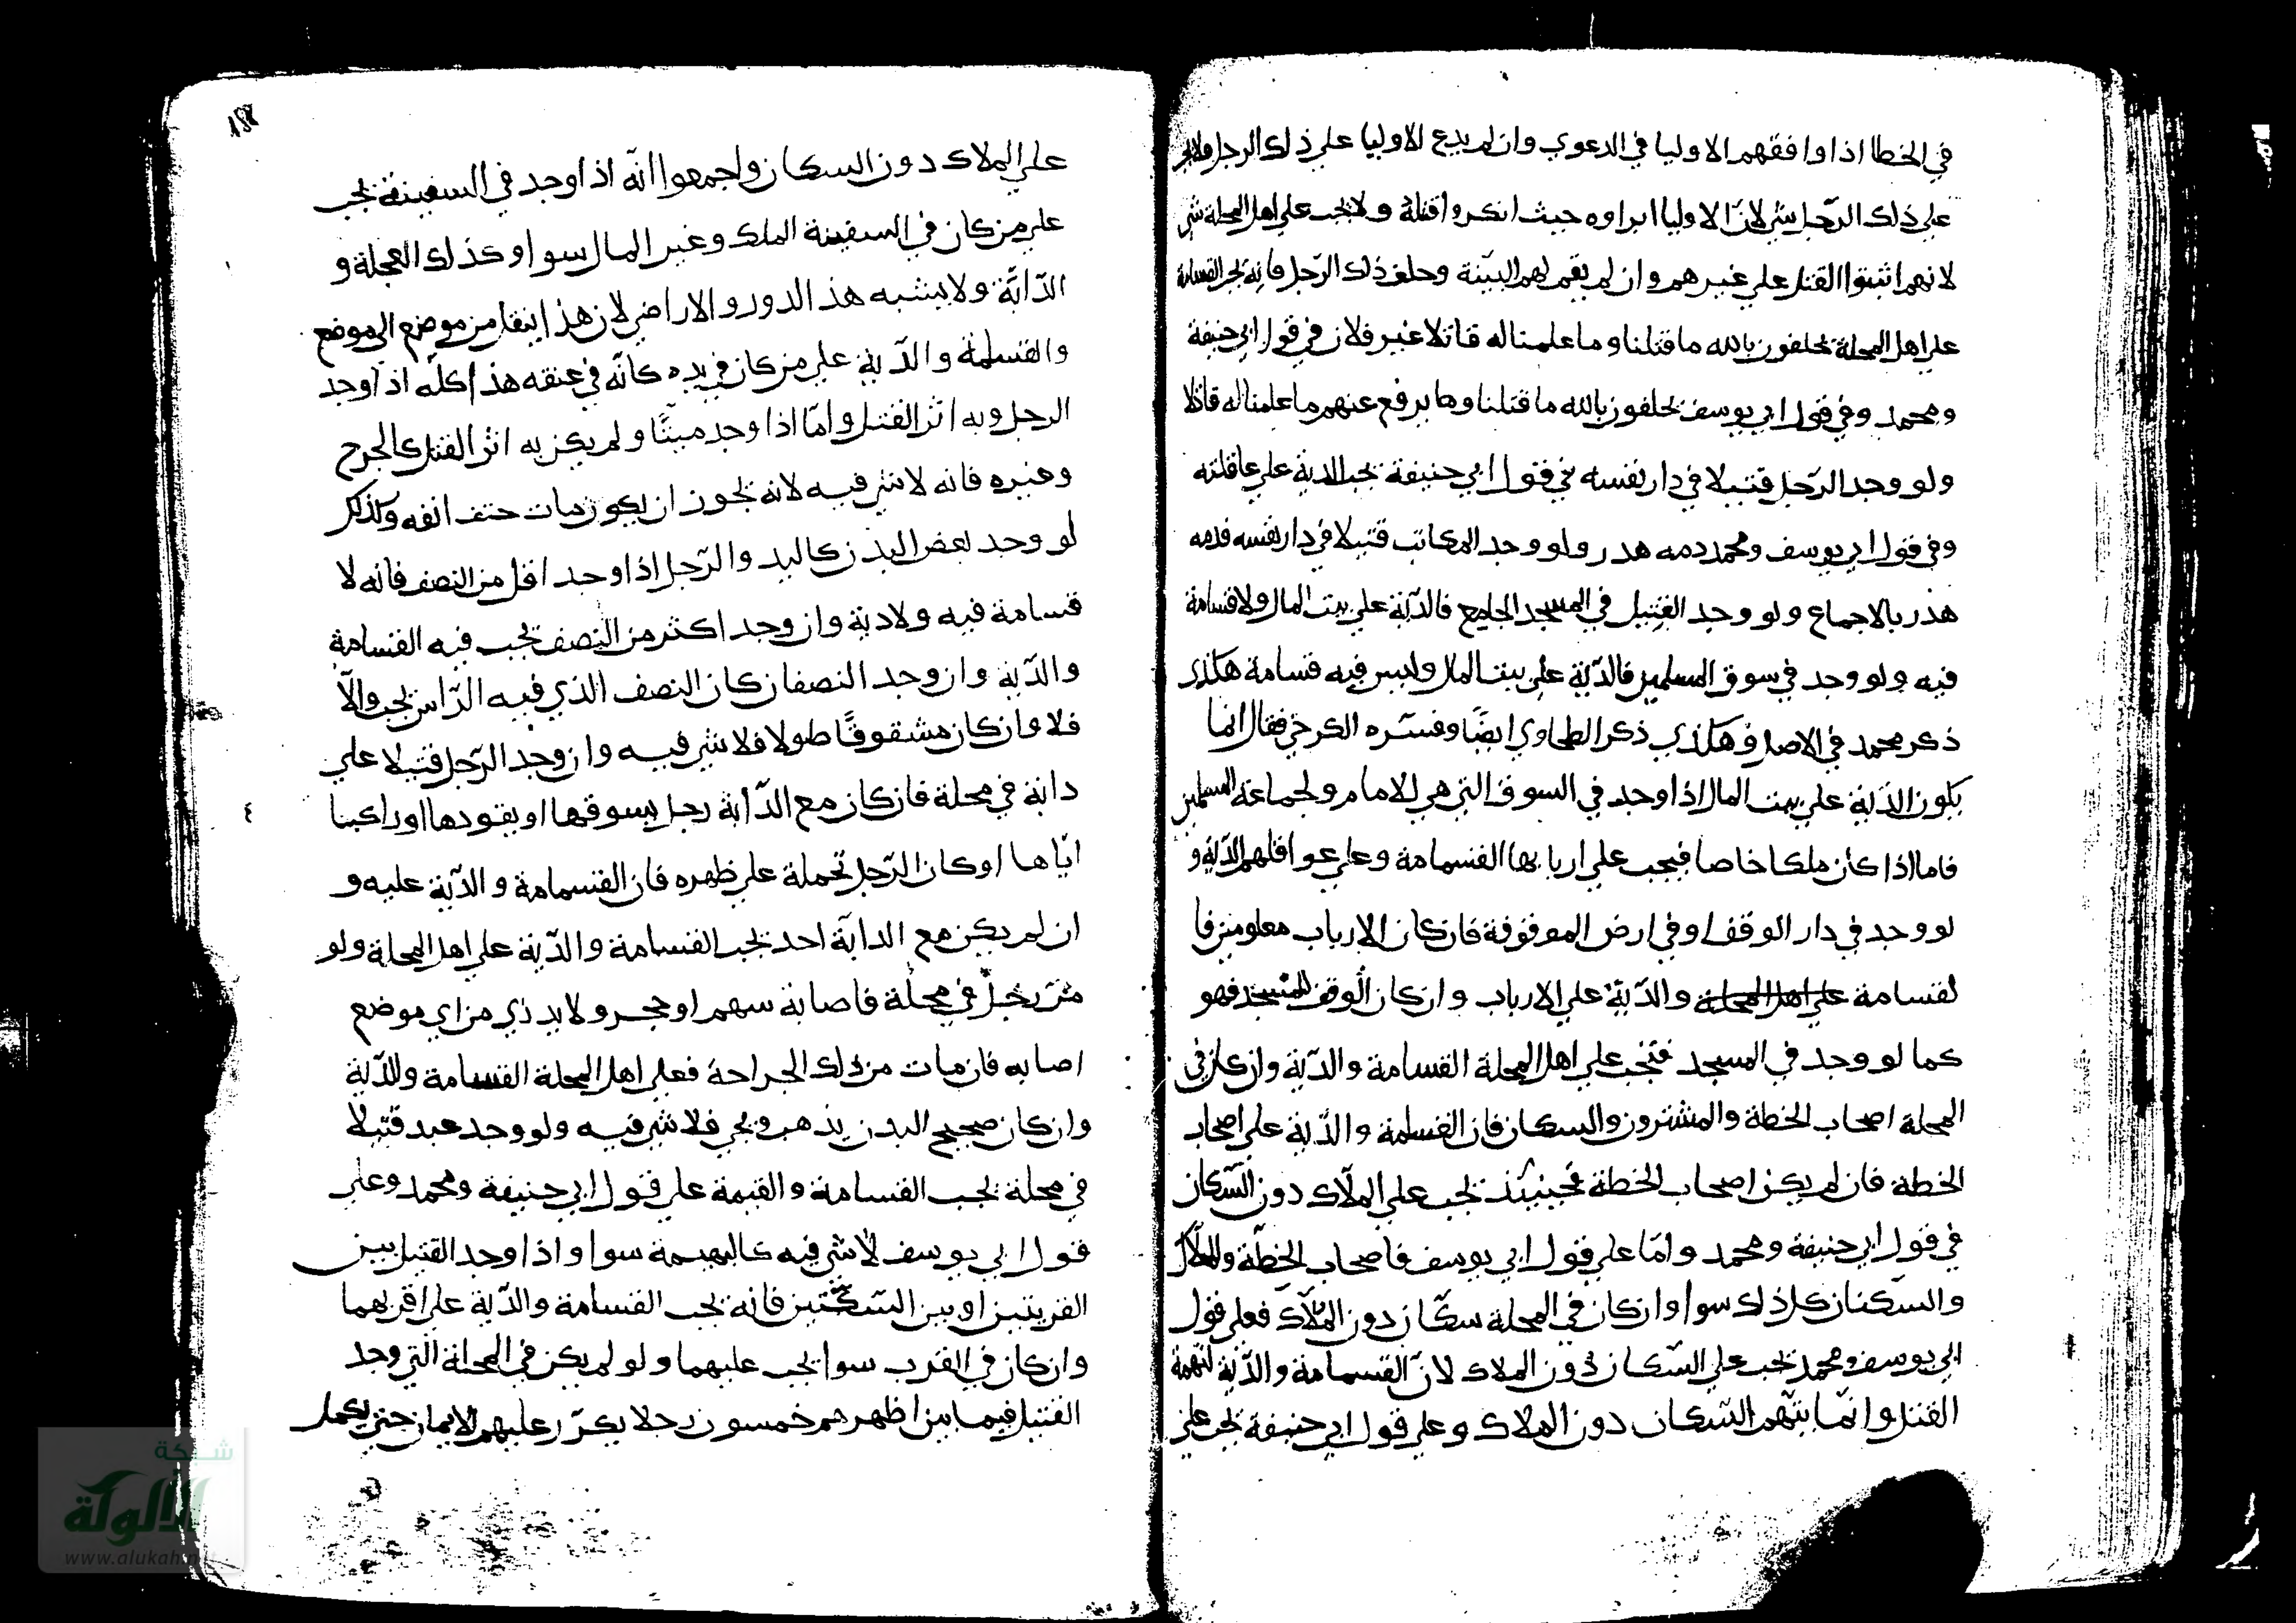 في الخطا اذا وافقهم الاوليا في الدعوي وان لم يدع الاوليا علي ذلك الرجل
علي ذلك الرّجل شي لانّ الاوليا ابراوه حيث انكروا قتله ولا يجب علي اهل المحلة شي
لانهم اثبتوا القتل علي غيرهم وان لم يقم لهم البيّنة وحلف ذلك الرّجل فانه تجب القسامة
علي اهل المحلة يحلفون بالله ما قتلنا وما علمنا له قاتلا غير فلان في قول ابي حنيفة
ومحمد وفي قول ابي يوسف يحلفون بالله ما قتلنا وها يرفع عنهم ما علمنا له قاتلا
ولو وجد الرّجل قتيلا في دار نفسه في قول ابي حنيفة تجب الدية علي عاقلته
وفي قول ابي يوسف ومحمد دمه هدر ولو وجد المكاتب قتيلا في دار نفسه فدمه
هذر بالاجماع ولو وجد القتيل في المسجد الجامع فالدّية علي بيت المال ولا قسامة
فيه ولو وجد في سوق المسلمين فالدّية علي بيت المال وليس فيه قسامة هكذي
ذكر محمد في الاصل وهكذي ذكر الطحاوي ايضًا وفسّره الكرخي فقال انما
يكون الدّية علي بيت المال اذا وجد في السوق التي هي للامام ولجماعة المسلمين
فاما اذا كان ملكا خاصا فيجب علي اربابها القسامة وعلي عواقلهم الدّية و
لو وجد في دار الوقف او في ارض الموقوفة فان كان الارباب معلومين فا
لقسامة علي اهل المحلة والدّية علي الارباب وان كان الوقف للمسجد فهو
كما لو وجد في المسجد فتجب علي اهل المحلة القسامة والدّية وان كان في
المحلة اصحاب الخطة والمشترون والسكان فان القسامة والدّية علي اصحاب
الخطه فان لم يكن اصحاب الخطة فحينئذ تجب علي الملّاك دون السّكان
في قول ابي حنيفة ومحمد وامّا علي قول ابي يوسف فاصحاب الخطّة والملّاك
والسكّنان كل ذلك سوا وان كان في المحلة سكّان دون الملّاك فعلي قول
ابي يوسف ومحمد تجب علي السّكان دون الملاك لانّ القسامة والدّية لتهمة
القتل وانّما يتّهم السّكان دون الملاك وعلي قول ابي حنيفة تجب علي
علي الملاك دون السكان واجمعوا انّه اذا وجد في السفينة تجب
علي من كان في السفينة الملك وغير المال سوا وكذلك العجلة و
الدّابّة ولا يشبه هذ الدور والاراضي لان هذا ينقل من موضع الي موضع
والقسامة والدّية علي من كان في يده كانّه في عنقه هذا كلّه اذا وجد
الرجل وبه اثر القتل وامّا اذا وجد ميتًا ولم يكن به اثر القتل كالجرح
وغيره فانه لا شي فيه لانه يجوز ان يكون مات حتف انفه وكذلك
لو وجد بعض البدن كاليد والرّجل اذا وجد اقل من النصف فانه لا
قسامة فيه ولا دية وان وجد اكثر من النصف تجب فيه القسامة
والدّية وان وجد النصف ان كان النصف الذي فيه الرّاس تجب والّا
فلا وان كان مشقوقًا طولا فلا شي فيه وان وجد الرّجل قتيلا علي
دابة في محلة فان كان مع الدّابة رجل يسوقها او يقودها او راكبا
ايّاها او كان الرّجل تحملة علي ظهره فان القسامة والدّية عليه و
ان لم يكن مع الدابّة احد تجب القسامة والدّية علي اهل المحلة ولو
مرّ رجل في محلّة فاصابة سهم او حجر ولا يدري من اي موضع
اصابه فان مات من ذلك الجراحة فعلي اهل المحلة القسامة والدّية
وان كان صحيح البدن يذهب ويجي فلا شي فيه ولو وجد عبد قتيلا
في محلة تجب القسامة والقيمة علي قول ابي حنيفة ومحمد وعلي
قول ابي يوسف لا شي فيه كالبهيمة سوا واذا وجد القتيل بين
القريتين او بين السكّتين فانه تجب القسامة والدّية علي اقربهما
وان كان في القرب سوا يجب عليهما ولو لم يكن في المحلة التي وجد
القتيل فيما بين اظهرهم خمسون رجلا يكرّر عليهم الايمان حتي يكمل
شبكة
الألوكة
www.alukah.net